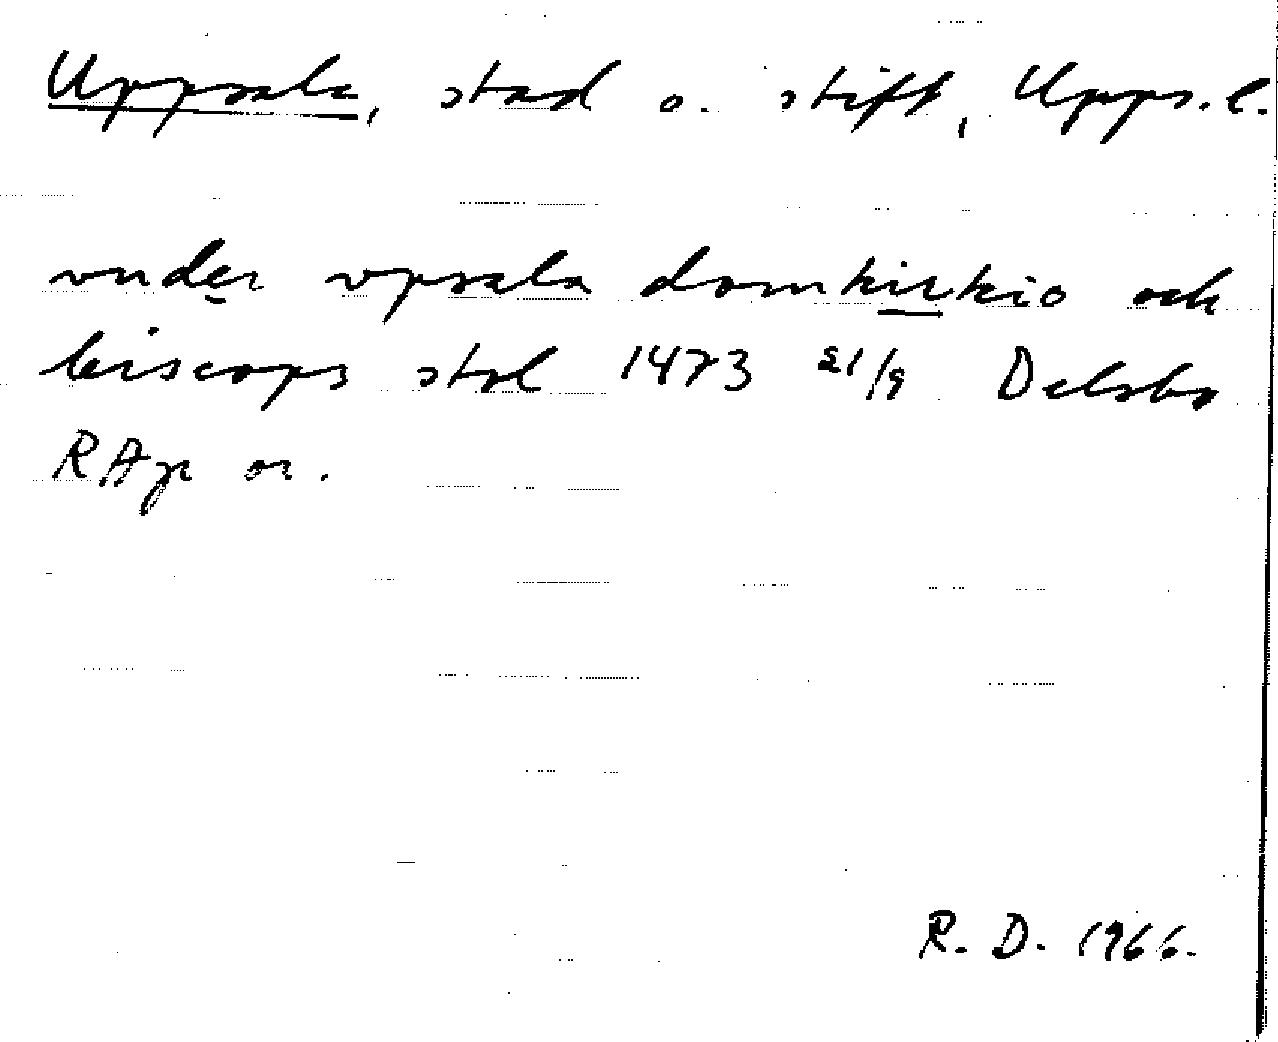 Uppsala, stad o. stift, Upps. l.
vnder vpsala domkirkio och
biscops stol 1473 21/9 Delsbo
RAp or.
R. D. 1966.